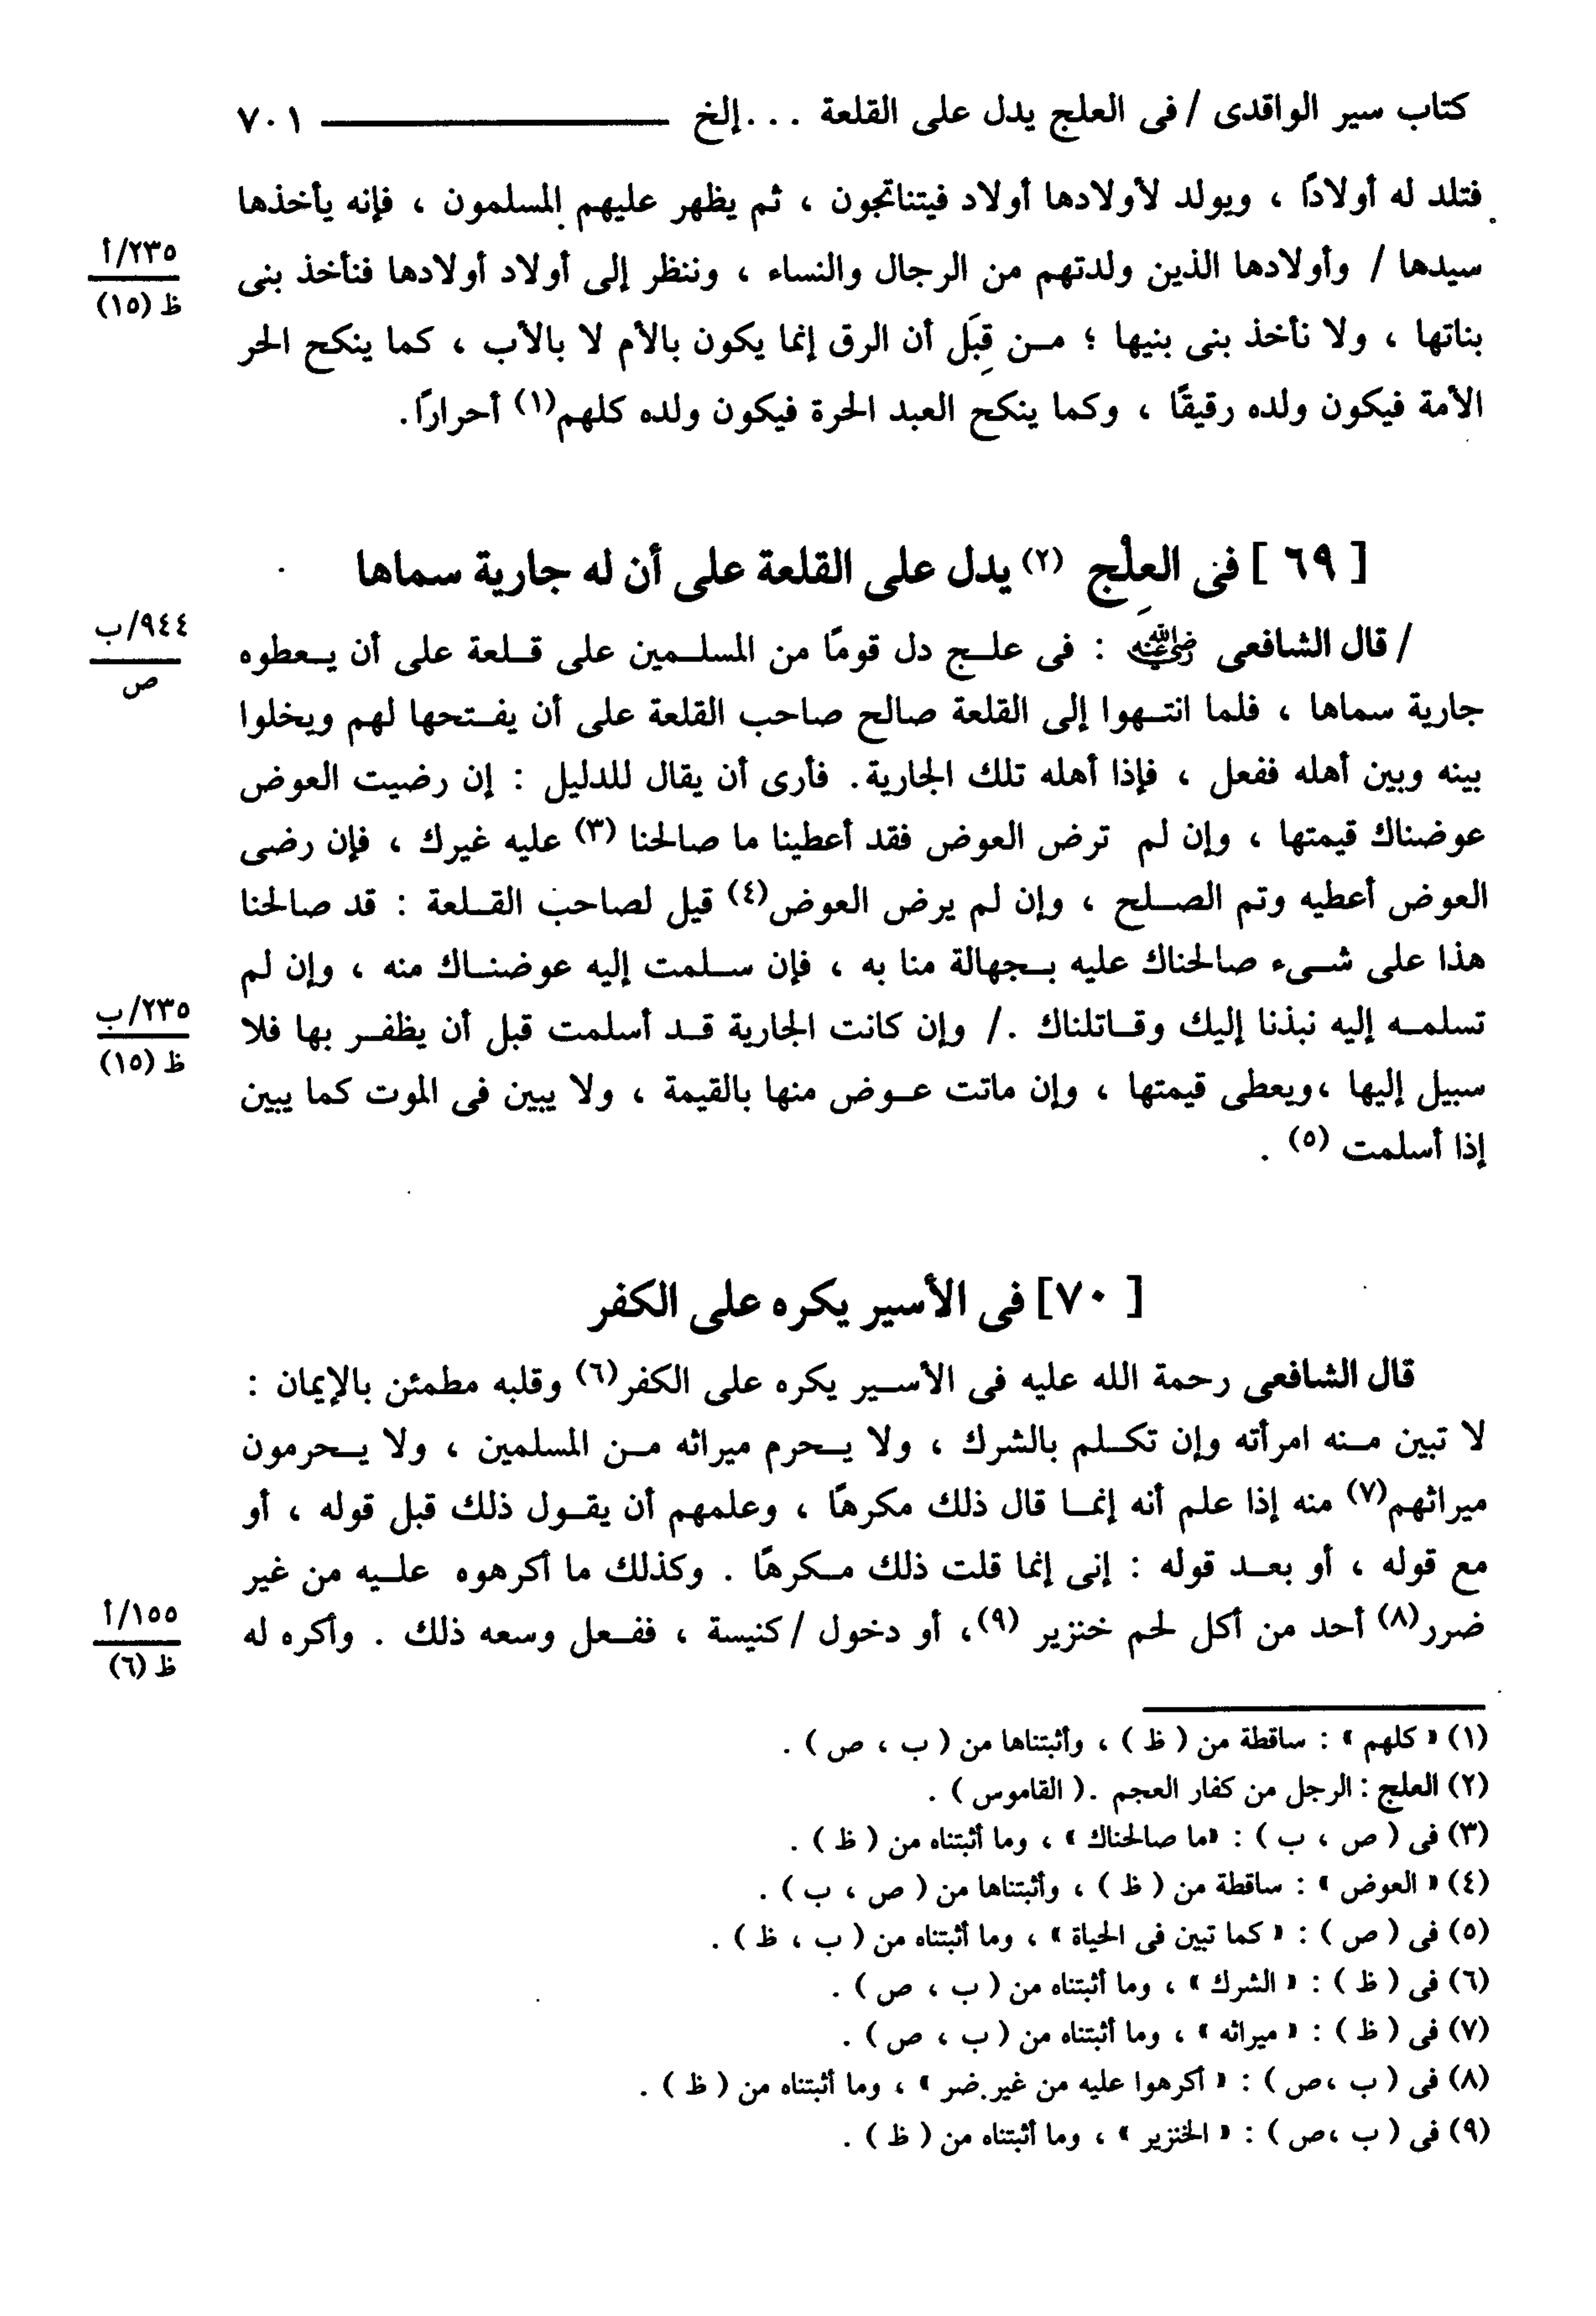 كتاب سير الواقدى / فى العلج يدل على القلعة . . . إلخ ٧٠١
فتلد له أولادًا ، ويولد لأولادها أولاد فيتناتجون ، ثم يظهر عليهم المسلمون ، فإنه يأخذها
سيدها / وأولادها الذين ولدتهم من الرجال والنساء ، وننظر إلى أولاد أولادها فنأخذ بنى
٢٣٥/أ
ظ (١٥)
بناتها ، ولا نأخذ بنى بنيها ؛ من قِبَل أن الرق إنما يكون بالأم لا بالأب ، كما ينكح الحر
الأمة فيكون ولده رقيقًا ، وكما ينكح العبد الحرة فيكون ولده كلهم(١) أحرارًا.
[ ٦٩ ] فى العِلْج (٢) يدل على القلعة على أن له جارية سماها
/ قال الشافعى رضي الله عنه : فى علج دل قومًا من المسلمين على قلعة على أن يعطوه
٩٤٤/ب
ص
جارية سماها ، فلما انتهوا إلى القلعة صالح صاحب القلعة على أن يفتحها لهم ويخلوا
بينه وبين أهله ففعل ، فإذا أهله تلك الجارية. فأرى أن يقال للدليل : إن رضيت العوض
عوضناك قيمتها ، وإن لم ترض العوض فقد أعطينا ما صالحنا (٣) عليه غيرك ، فإن رضى
العوض أعطيه وتم الصلح ، وإن لم يرض العوض(٤) قيل لصاحب القلعة : قد صالحنا
هذا على شىء صالحناك عليه بجهالة منا به ، فإن سلمت إليه عوضناك منه ، وإن لم
تسلمه إليه نبذنا إليك وقاتلناك ./ وإن كانت الجارية قد أسلمت قبل أن يظفر بها فلا
٢٣٥/ب
ظ (١٥)
سبيل إليها ،ويعطى قيمتها ، وإن ماتت عوض منها بالقيمة ، ولا يبين فى الموت كما يبين
إذا أسلمت (٥) .
[ ٧٠] فى الأسير يكره على الكفر
قال الشافعى رحمة الله عليه فى الأسير يكره على الكفر(٦) وقلبه مطمئن بالإيمان :
لا تبين منه امرأته وإن تكلم بالشرك ، ولا يحرم ميراثه من المسلمين ، ولا يحرمون
ميراثهم(٧) منه إذا علم أنه إنما قال ذلك مكرهًا ، وعلمهم أن يقول ذلك قبل قوله ، أو
مع قوله ، أو بعد قوله : إنى إنما قلت ذلك مكرهًا . وكذلك ما أكرهوه عليه من غير
ضرر(٨) أحد من أكل لحم خنزير (٩)، أو دخول / كنيسة ، ففعل وسعه ذلك . وأكره له
١٥٥/أ
ظ (٦)
(١) « كلهم » : ساقطة من ( ظ ) ، وأثبتناها من ( ب ، ص ) .
(٢) العلج : الرجل من كفار العجم .( القاموس ) .
(٣) فى ( ص ، ب ) : «ما صالحناك » ، وما أثبتناه من ( ظ ) .
(٤) « العوض » : ساقطة من ( ظ ) ، وأثبتناها من ( ص ، ب ) .
(٥) فى ( ص ) : « كما تبين فى الحياة » ، وما أثبتناه من ( ب ، ظ ) .
(٦) فى ( ظ ) : « الشرك » ، وما أثبتناه من ( ب ، ص ) .
(٧) فى ( ظ ) : « ميراثه » ، وما أثبتناه من ( ب ، ص ) .
(٨) فى ( ب ،ص ) : « أكرهوا عليه من غير ضر » ، وما أثبتناه من ( ظ ) .
(٩) فى ( ب ،ص ) : « الخنزير » ، وما أثبتناه من ( ظ ) .